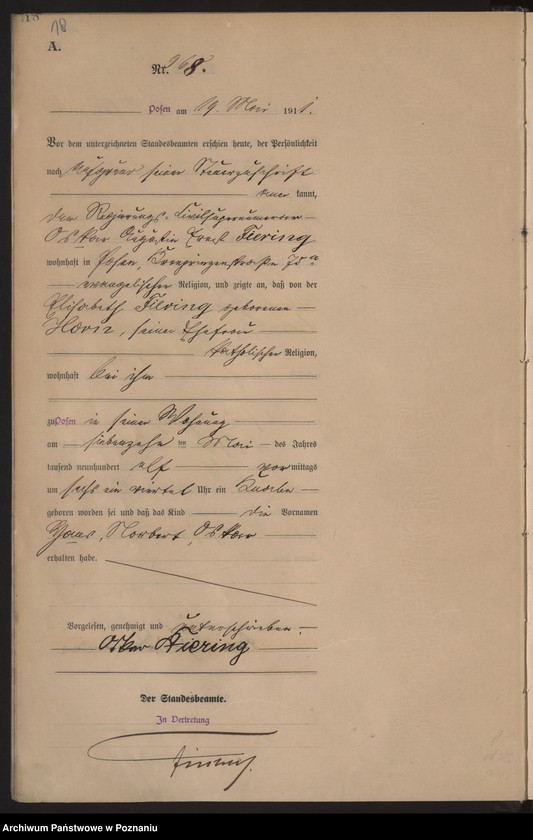 18
A.
Nr. 268.
Posen am 19. Mai 1911.
Vor dem unterzeichneten Standesbeamten erschien heute, der Persönlichkeit
nach seiner Steuerzuschrift
kannt,
der Regierungs-Civilsupernumerar
Oskar Augustin Ernst Fiering
wohnhaft in Posen, Kronprinzenstraße
evangelischer Religion, und zeigte an, daß von der
Elisabeth Fiering geborenen
seiner Ehefrau
katholischer Religion,
wohnhaft bei ihm
zu Posen in seiner Wohnung
am siebenzehn ten Mai des Jahres
tausend neunhundert elf vor mittags
um sechs ein viertel Uhr ein Knabe
geboren worden sei und daß das Kind die Vornamen
Hans, Norbert, Oskar
erhalten habe.
Vorgelesen, genehmigt und unterschrieben.
Oskar Fiering
Der Standesbeamte.
In Vertretung
Archiwum Państwowe w Poznaniu